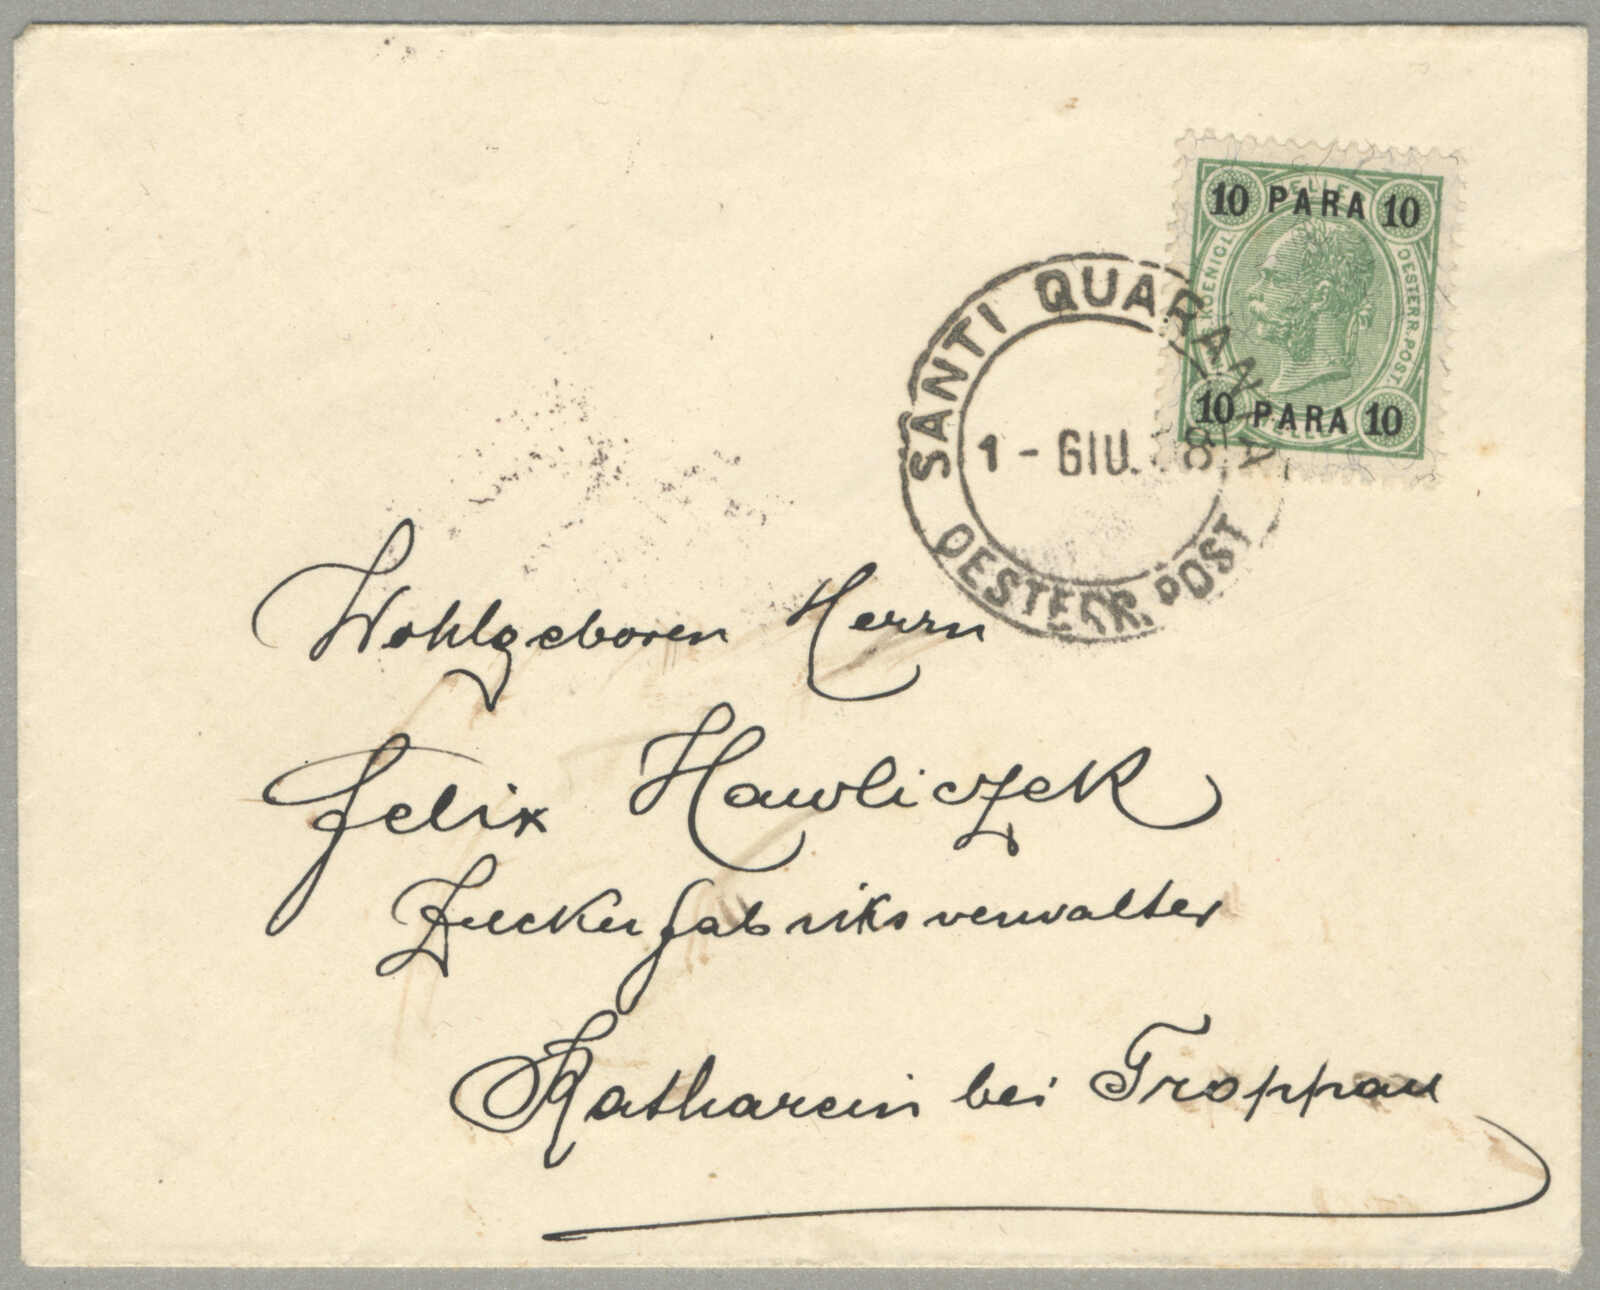 10 PARA 10
KOENIGL.
OESTERR. POST.
10 PARA 10
SANTI QUARANTA
1 - GIU.
OESTERR. POST
Wohlgeboren Herrn
Felix Hawliczek
Zuckerfabriksverwalter
Katharein bei Troppau